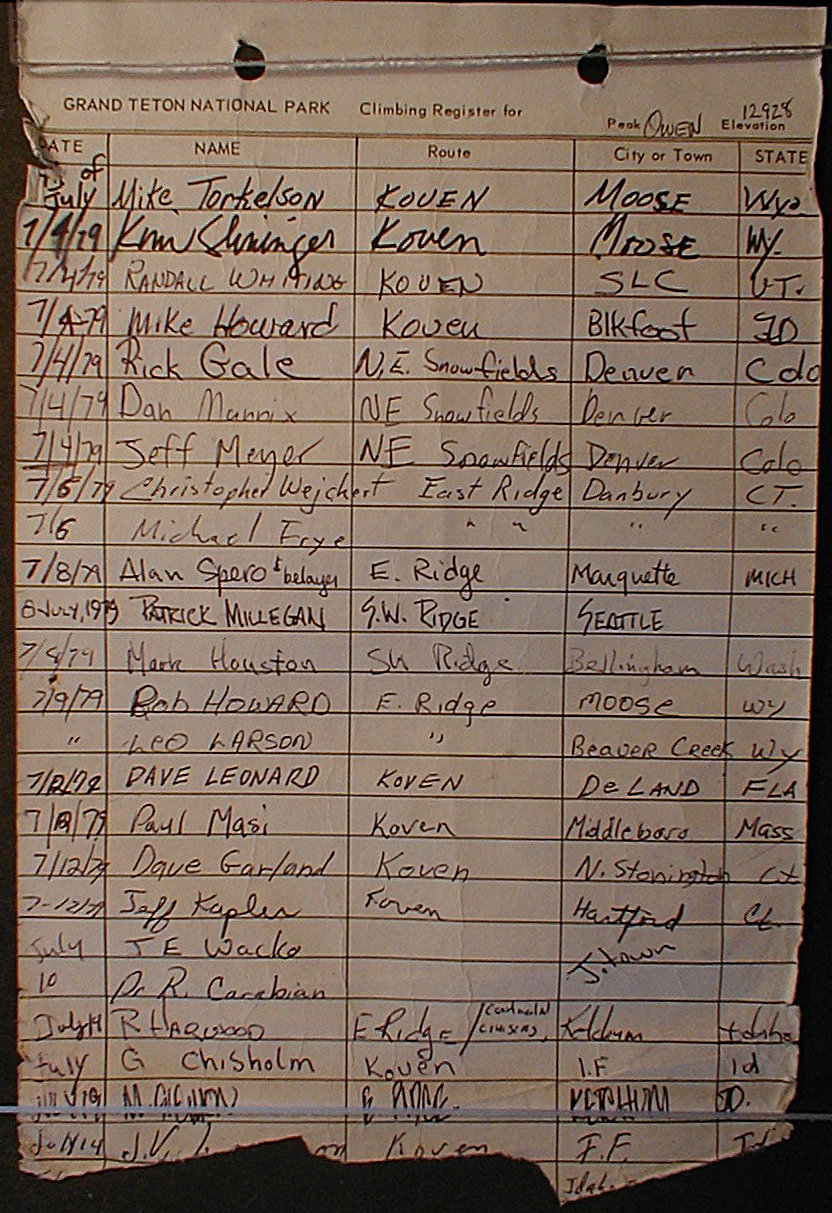 GRAND TETON NATIONAL PARK Climbing Register for Peak OWEN Elevation 12928
DATE NAME Route City or Town STATE
of July Mike Torkelson KOVEN MOOSE Wyo
7/4/79 Koven MOOSE WY.
7/4/79 RANDALL WHITING KOVEN SLC UT.
7/4-79 Mike Howard Koven Blkfoot ID
7/4/79 Rick Gale N.E. Snowfields Denver Colo
7/4/79 Dan Mannix NE Snowfields Denver Colo
7/4/79 Jeff Meyer NE Snowfields Denver Colo
7/6/79 Christopher Weichert East Ridge Danbury CT.
7/6 Michael Frye " " " "
7/8/79 Alan Spero & belayer E. Ridge Marquette MICH
8 JULY, 1979 PATRICK MILLEGAN S.W. RIDGE SEATTLE
7/8/79 Mark Houston SW Ridge Bellingham Wash
7/9/79 Bob HOWARD E. Ridge MOOSE WY
" LEO LARSON " BEAVER CREEK WY
DAVE LEONARD KOVEN DeLAND FLA
Paul Masi Koven Middleboro Mass
7/12/79 Dave Garland Koven N. Stonington Ct
7-12/79 Jeff Kapler Koven Hartford Ct.
July J E Wacko J.town
10 Dr R. Carabian
July 14 R HARWOOD E Ridge / Idaho
July G Chisholm Koven I.F Id
M. KETCHUM ID.
July 14 J.V. Koven I.F.